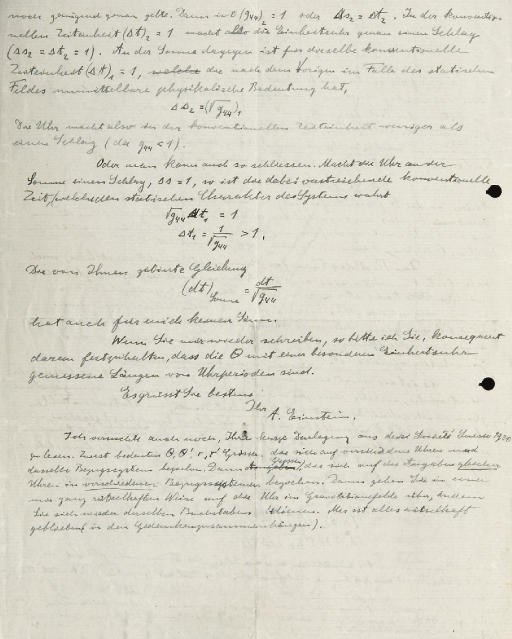 noch genügend genau gelte. Dann ist (g₄₄)₂ = 1 oder Δs₂ = Δt₂. In der konventio-
nellen Zeiteinheit (Δt)₂ = 1 macht also die Einheitsuhr genau einen Schlag
(Δs₂ = Δt₂ = 1). An der Sonne dagegen ist für dieselbe konventionelle
Zeiteinheit (Δt)₁ = 1, welche die nach dem Vorigen im Falle des statischen
Feldes unmittelbare physikalische Bedeutung hat,
Δs₂ = (√g₄₄)₁
Die Uhr macht also in der konventionellen Zeiteinheit weniger als
einen Schlag (da g₄₄ < 1).
Oder man kann auch so schliessen. Macht die Uhr an der
Sonne einen Schlag, Δs = 1, so ist die dabei verstreichende konventionelle
Zeit, welche den statischen Charakter des Systems wahrt
√g₄₄ Δt₁ = 1
Δt₁ = 1/√g₄₄ > 1.
Die von Ihnen zitierte Gleichung
(dt)Sonne = dt/√g₄₄
hat auch für mich keinen Sinn.
Wenn Sie mir wieder schreiben, so bitte ich Sie, konsequent
daran festzuhalten, dass die Θ mit einer besonderen Einheitsuhr
gemessene Längen von Uhrperioden sind.
Es grüsst Sie bestens
Ihr
A. Einstein.
Ich versuchte auch noch, Ihre kurze Darlegung aus der Société Suisse
zu lesen. Zuerst bedeuten Θ, Θ', τ, τ' Grössen, die sich auf verschiedene Uhren und
dasselbe Bezugssystem beziehen. Dann Grössen, die sich auf dieselben gleichen
Uhren in verschiedenen Bezugssystemen beziehen. Dann gehen Sie in einer
mir ganz rätselhaften Weise auf die Uhr im Gravitationsfelde über, indem
Sie sich wieder derselben Buchstaben bedienen. Mir ist alles rätselhaft
geblieben (in den Gedankenzusammenhängen).